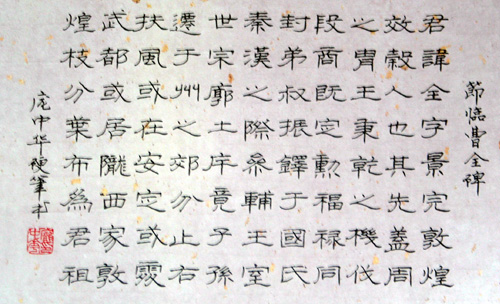 節臨曹全碑
君諱全字景完敦煌
效穀人也其先蓋周
之胄王秉乾之機伐
殷商既定勳福祿同
封弟叔振鐸于國氏
秦漢之際參輔王室
世宗廓土斥竟子孫
遷于州之郊分止右
扶風或在安定或處
武都或居隴西家敦
煌枝分葉布為君祖
庞中华硬筆书